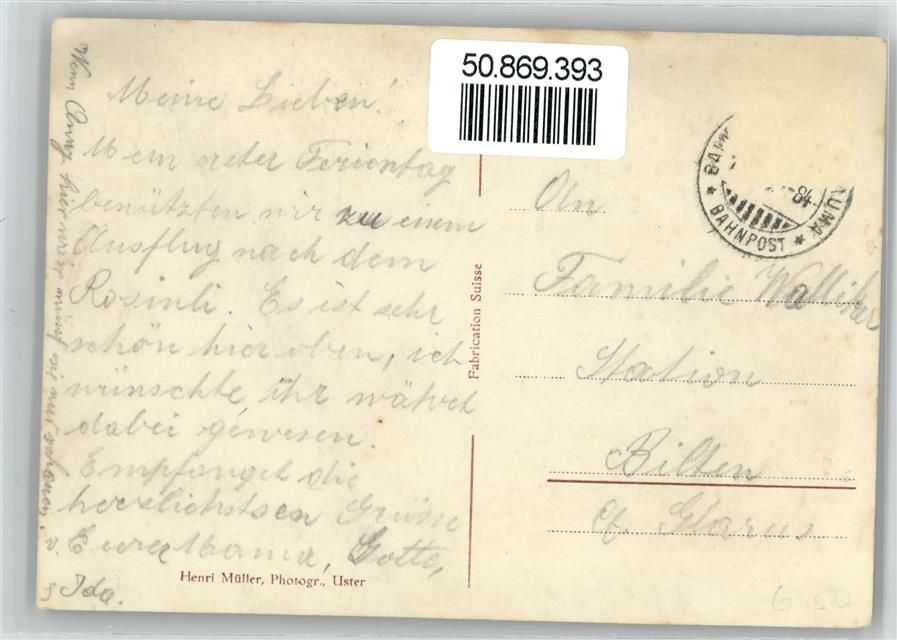 50.869.393
Meine Lieben!
Mein erster Ferientag
benützten wir zu einem
Ausflug nach dem
Rosinli. Es ist sehr
schön hier oben, ich
wünschte ihr wäret
dabei gewesen.
Empfanget die
herzlichsten Grüsse
v. Eurer Mama, Gotte,
Ida.
Wenn Anny hier wäre
Henri Müller, Photogr., Uster
Fabrication Suisse
BAHNPOST
UMA
84
An
Familie Walliker
Station
Bilten
Ct. Glarus
6.50